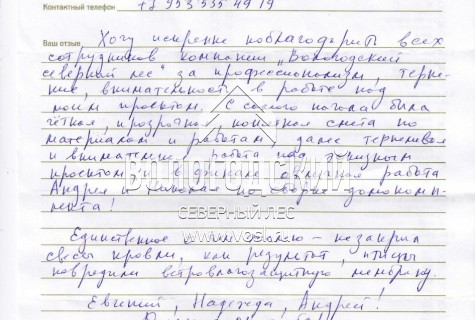 Контактный телефон +7 953 535 49 19
Ваш отзыв Хочу искренне поблагодарить всех
сотрудников компании "Вологодский
северный лес" за профессионализм, терпе-
ние, внимательность в работе над
моим проектом. С самого начала была
чёткая, прозрачная, понятная смета по
материалам и работам, далее терпеливая
и внимательная работа над эскизным
проектом и в финале отличная работа
Андрея и Николая на сборке домокомп-
лекта!
ВОЛОГОДСКИЙ
СЕВЕРНЫЙ ЛЕС
Единственное - не закрыл
свесы кровли, как результат, птицы
повредили ветровлагозащитную мембрану.
Евгений, Надежда, Андрей!